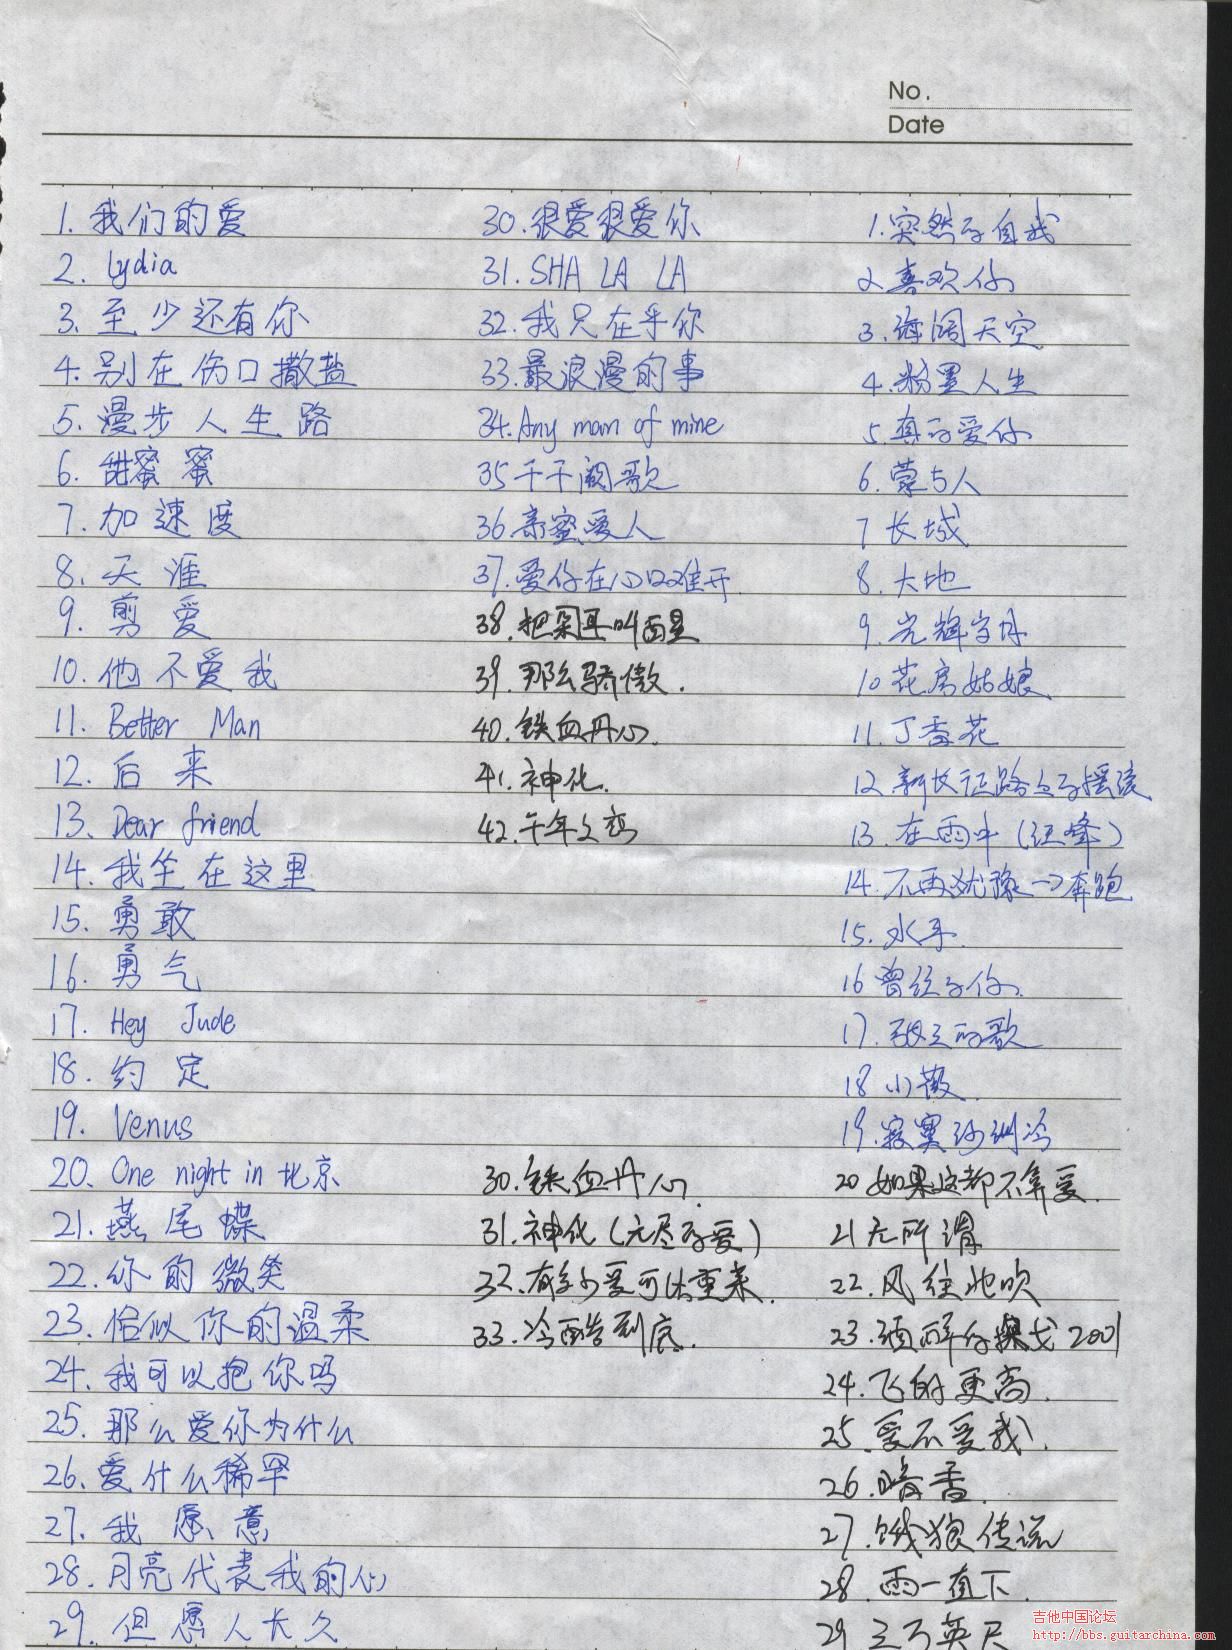 No.
Date
1. 我们的爱
2. Lydia
3. 至少还有你
4. 别在伤口撒盐
5. 漫步人生路
6. 甜蜜蜜
7. 加速度
8. 天涯
9. 剪爱
10. 他不爱我
11. Better Man
12. 后来
13. Dear friend
14. 我坐在这里
15. 勇敢
16. 勇气
17. Hey Jude
18. 约定
19. Venus
20. One night in 北京
21. 燕尾蝶
22. 你的微笑
23. 恰似你的温柔
24. 我可以抱你吗
25. 那么爱你为什么
26. 爱什么稀罕
27. 我愿意
28. 月亮代表我的心
29. 但愿人长久
30. 很爱很爱你
31. SHA LA LA
32. 我只在乎你
33. 最浪漫的事
34. Any man of mine
35 千千阙歌
36. 亲蜜爱人
37. 爱你在心口难开.
38. 把朵耳叫醒
39. 那么骄傲.
40. 铁血丹心.
41. 神化.
42. 千年之恋
30. 铁血丹心.
31. 神化(无尽的爱)
32. 有多少爱可以重来.
33. 冷酷到底.
1. 突然的自我
2. 喜欢你
3. 海阔天空
4. 粉墨人生
5. 真的爱你
6. 与人
7 长城
8. 大地
9. 光辉岁月
10 花房姑娘
11. 丁香花
12. 新长征路上的摇滚
13. 在雨中(汪峰)
14. 不再犹豫一>奔跑
15. 水手.
16 曾经的你.
17. 张三的歌
18 小薇.
19. 寂寞沙洲冷
20 如果这都不算爱.
21 无所谓
22. 风往北吹
23. 酒醉的探戈2001
24. 飞的更高.
25. 爱不爱我.
26. 暗香.
27. 饿狼传说
28. 雨一直下.
29 三万英尺
吉他中国论坛
http://bbs.guitarchina.com